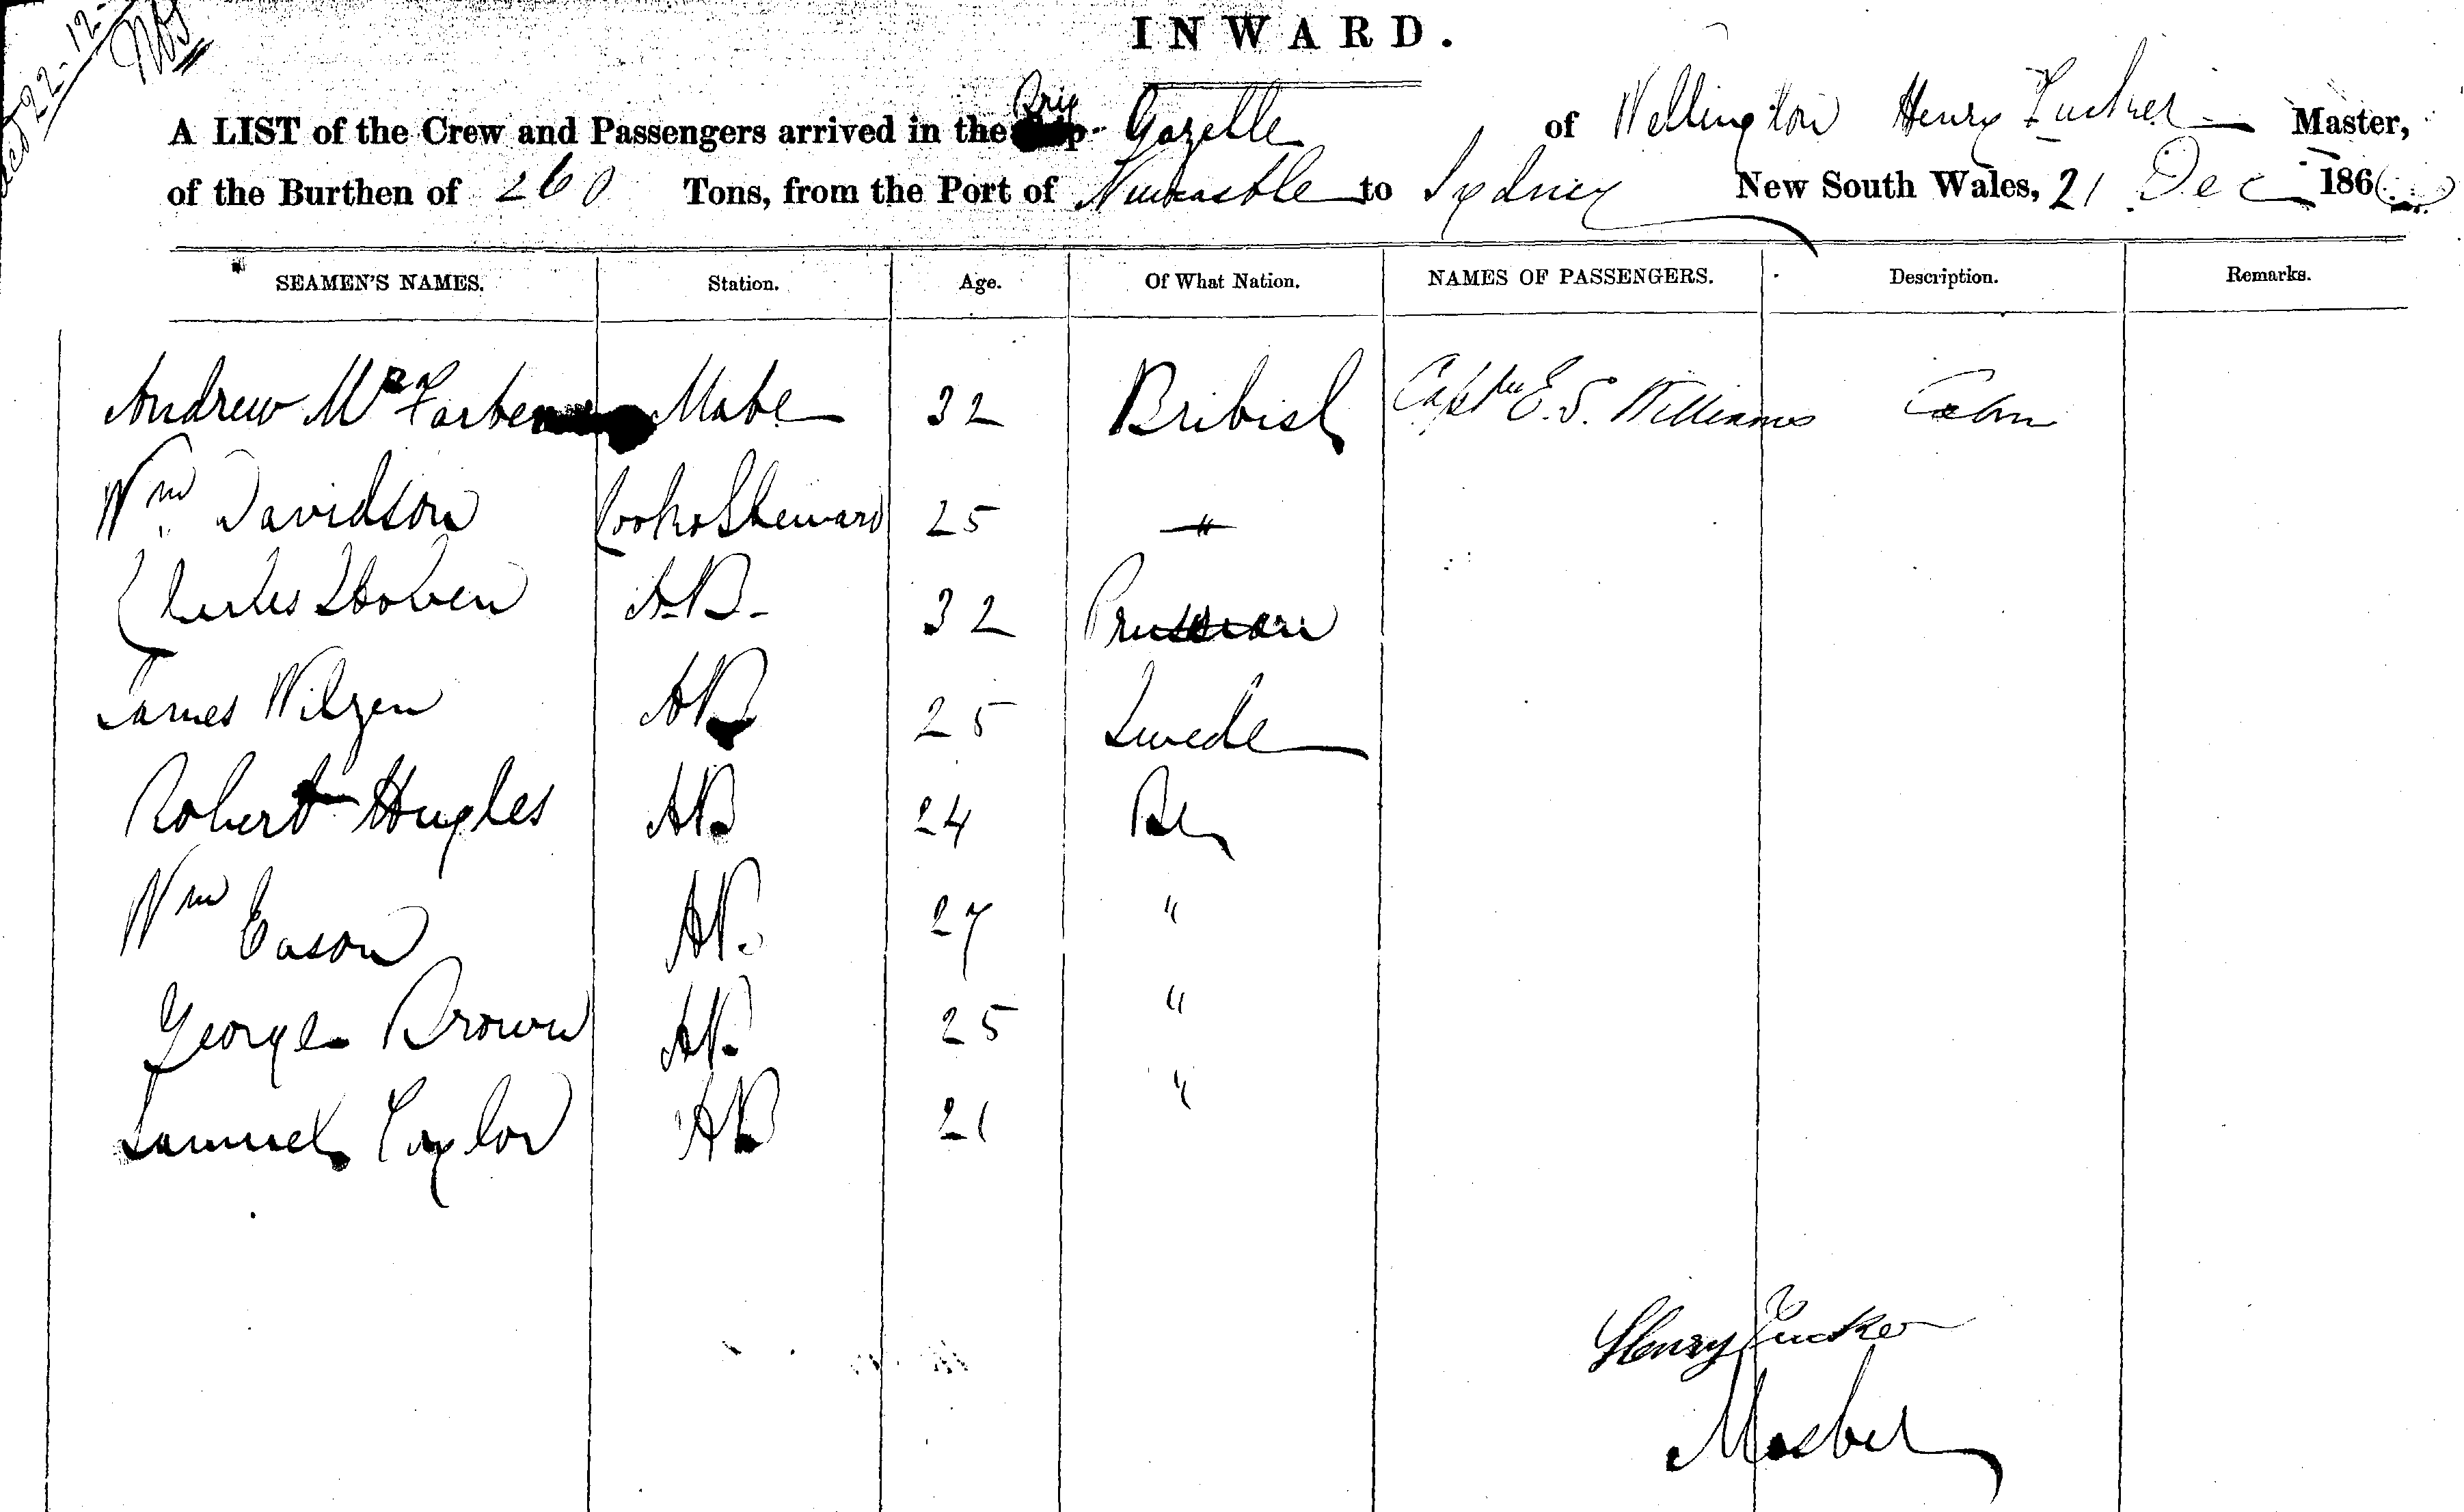 22-12-
INWARD.
A LIST of the Crew and Passengers arrived in the Brig Gazelle of Wellington Henry Tucker Master,
of the Burthen of 260 Tons, from the Port of Newcastle to Sydney New South Wales, 21 Dec 186
SEAMEN'S NAMES. Station. Age. Of What Nation. NAMES OF PASSENGERS. Description. Remarks.
Andrew Mate 32 British Captn E. S. Williams Cabin
Wm Davidson Cook & Steward 25 "
Charles A.B. 32 Prussian
James Wilzen AB 25 Swede
Robert Hughes AB 24 Br
Wm Eason AB. 27 "
George Brown AB. 25 "
Samuel Taylor AB 21 "
Henry Tucker
Master